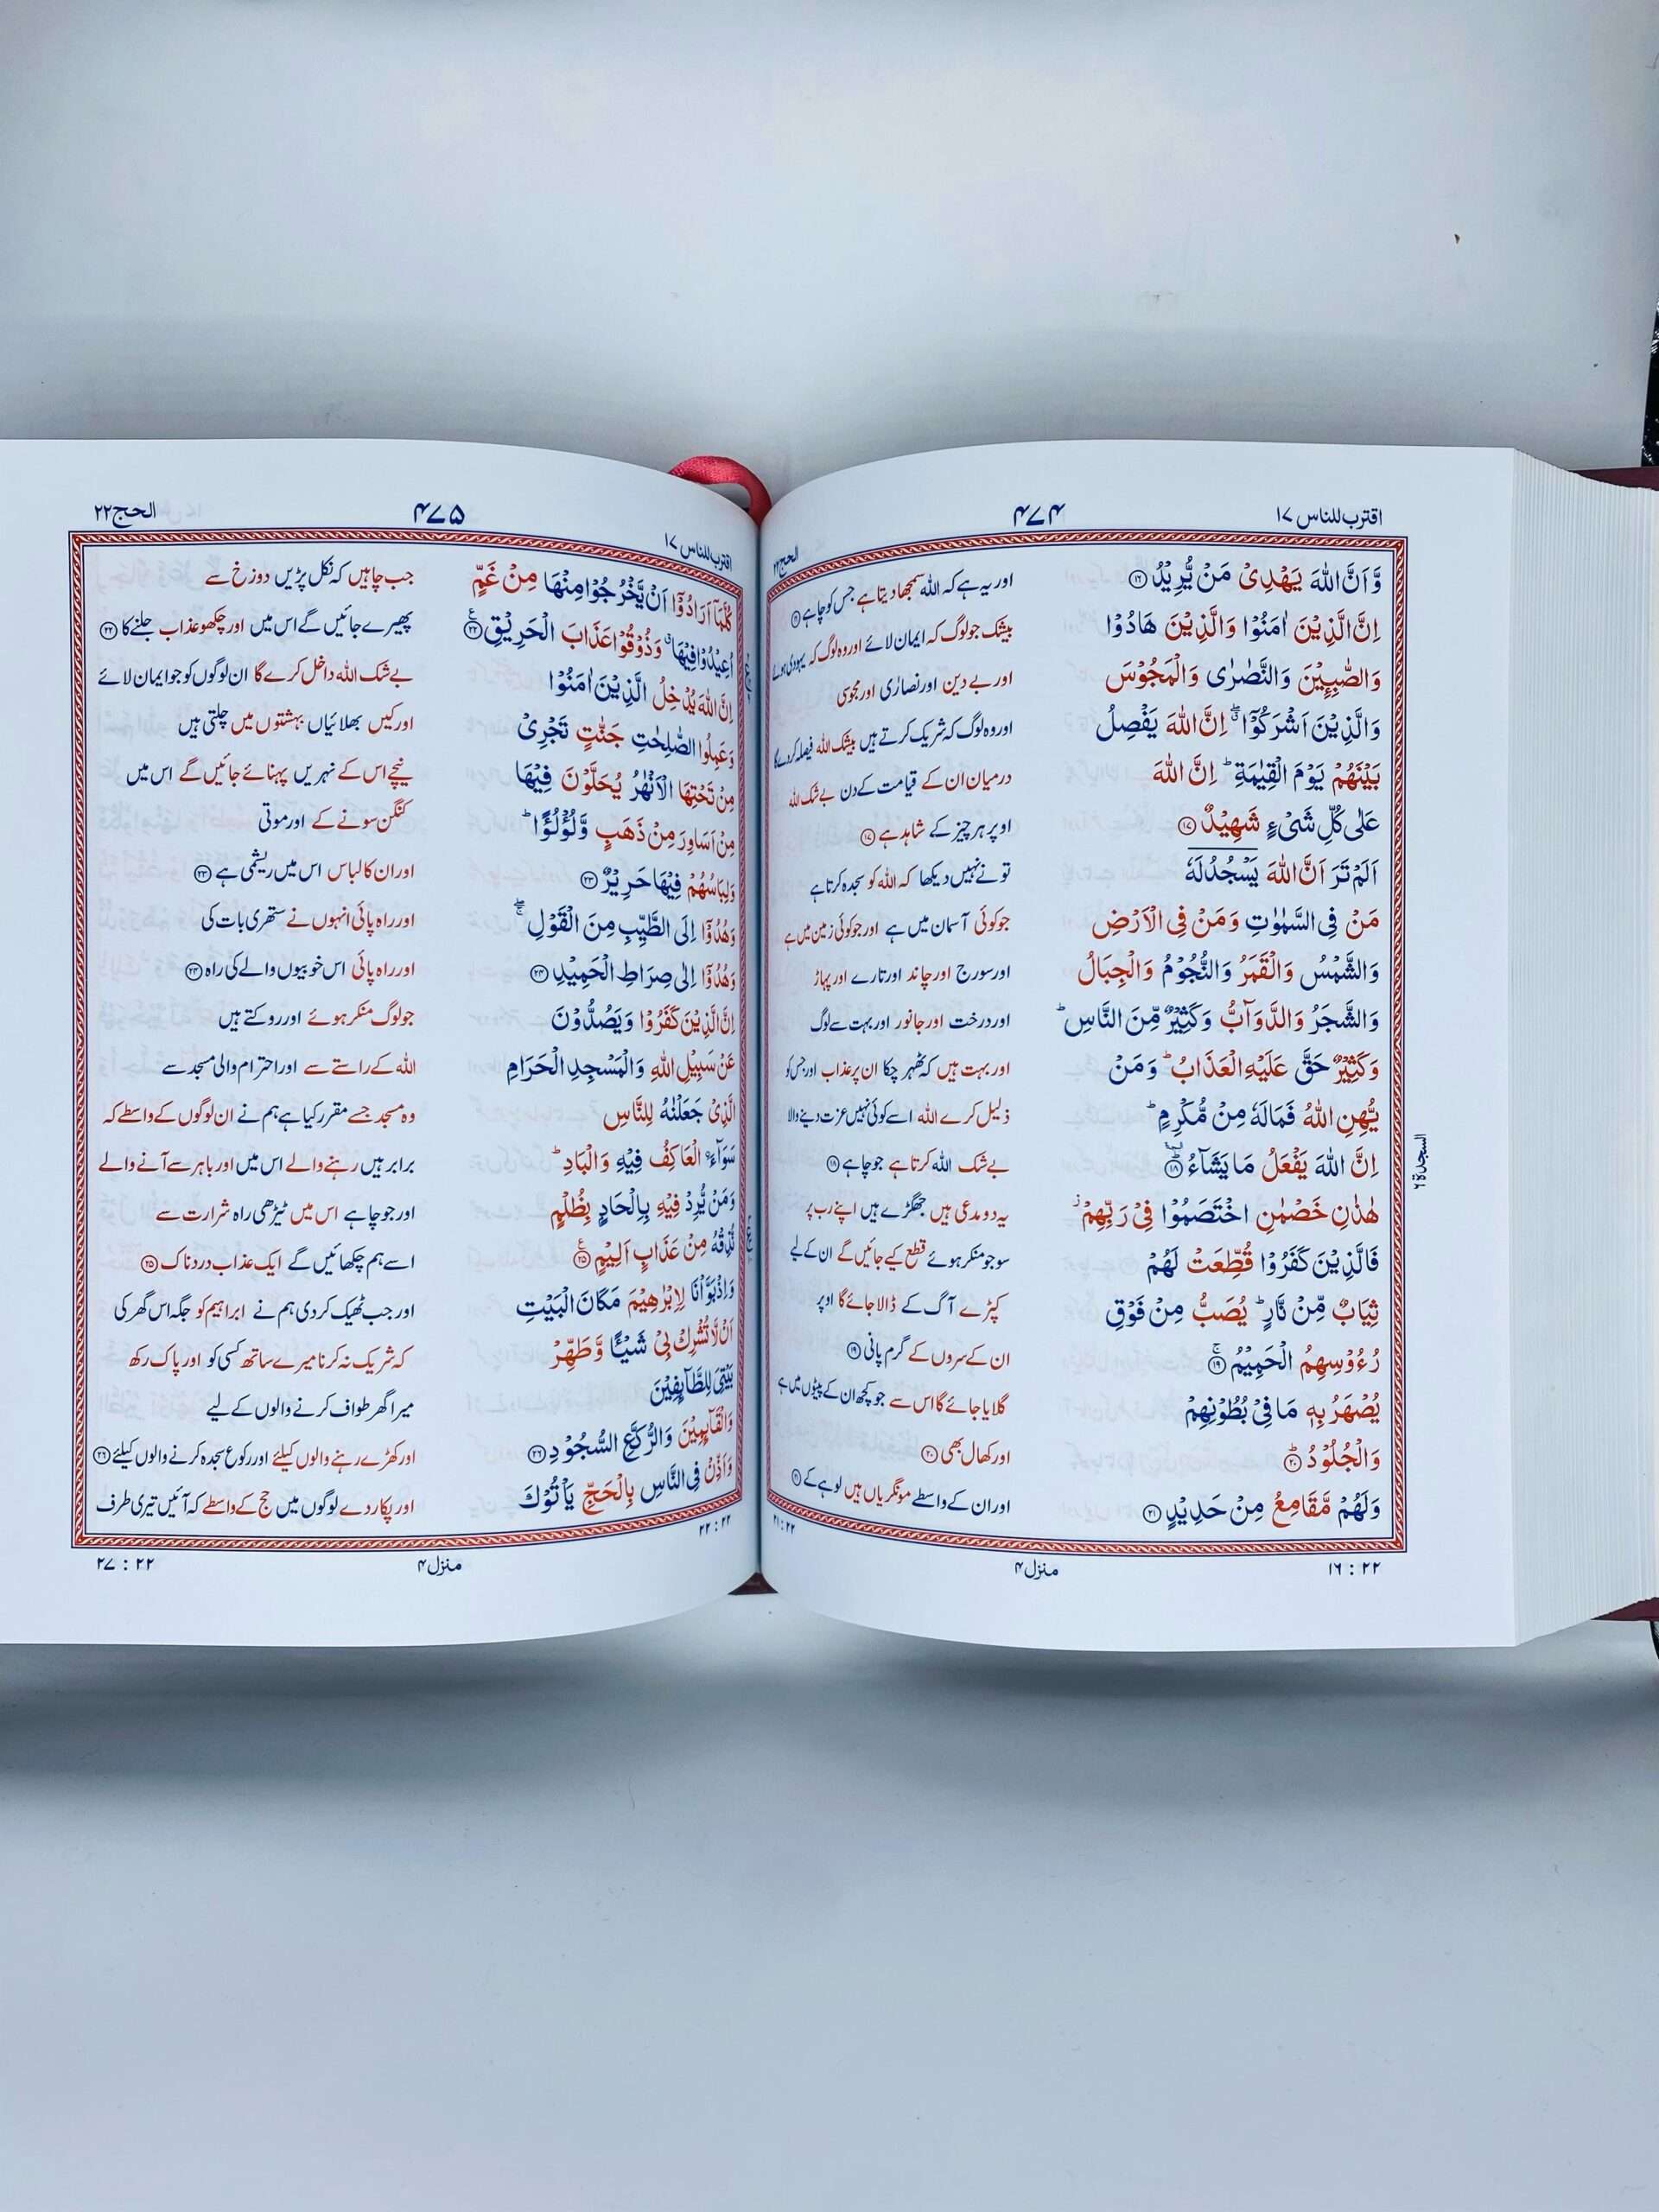 اقترب للناس ١٧
۴۷۴
الحج ٢٢
وَّاَنَّ اللّٰهَ يَهْدِىْ مَنْ يُّرِيْدُ ⑯
اور یہ ہے کہ اللہ سمجھا دیتا ہے جس کو چاہے ⑯
اِنَّ الَّذِيْنَ اٰمَنُوْا وَالَّذِيْنَ هَادُوْا
بیشک جو لوگ کہ ایمان لائے اور وہ لوگ کہ یہودی ہوئے
وَالصّٰبِـِٕيْنَ وَالنَّصٰرٰى وَالْمَجُوْسَ
اور بے دین اور نصارٰی اور مجوسی
وَالَّذِيْنَ اَشْرَكُوْٓا ۖ اِنَّ اللّٰهَ يَفْصِلُ
اور وہ لوگ کہ شریک کرتے ہیں بیشک اللہ فیصلہ کردے گا
بَيْنَهُمْ يَوْمَ الْقِيٰمَةِ ؕ اِنَّ اللّٰهَ
درمیان ان کے قیامت کے دن بے شک اللہ
عَلٰى كُلِّ شَىْءٍ شَهِيْدٌ ⑰
اوپر ہر چیز کے شاہد ہے ⑰
اَلَمْ تَرَ اَنَّ اللّٰهَ يَسْجُدُ لَهٗ
تو نے نہیں دیکھا کہ اللہ کو سجدہ کرتا ہے
مَنْ فِى السَّمٰوٰتِ وَمَنْ فِى الْاَرْضِ
جو کوئی آسمان میں ہے اور جو کوئی زمین میں ہے
وَالشَّمْسُ وَالْقَمَرُ وَالنُّجُوْمُ وَالْجِبَالُ
اور سورج اور چاند اور تارے اور پہاڑ
وَالشَّجَرُ وَالدَّوَآبُّ وَكَثِيْرٌ مِّنَ النَّاسِ ؕ
اور درخت اور جانور اور بہت سے لوگ
وَكَثِيْرٌ حَقَّ عَلَيْهِ الْعَذَابُ ؕ وَمَنْ
اور بہت ہیں کہ ٹھہر چکا ان پر عذاب اور جس کو
يُّهِنِ اللّٰهُ فَمَا لَهٗ مِنْ مُّكْرِمٍ ؕ
ذلیل کرے اللہ اسے کوئی نہیں عزت دینے والا
اِنَّ اللّٰهَ يَفْعَلُ مَا يَشَآءُ ⑱
بے شک اللہ کرتا ہے جو چاہے ⑱
السجدة ٦
هٰذٰنِ خَصْمٰنِ اخْتَصَمُوْا فِىْ رَبِّهِمْ ز
یہ دو مدعی ہیں جھگڑے ہیں اپنے رب پر
فَالَّذِيْنَ كَفَرُوْا قُطِّعَتْ لَهُمْ
سو جو منکر ہوئے قطع کیے جائیں گے ان کے لیے
ثِيَابٌ مِّنْ نَّارٍ ؕ يُصَبُّ مِنْ فَوْقِ
کپڑے آگ کے ڈالا جائے گا اوپر
رُءُوْسِهِمُ الْحَمِيْمُ ⑲
ان کے سروں کے گرم پانی ⑲
يُصْهَرُ بِهٖ مَا فِىْ بُطُوْنِهِمْ
گلایا جائے گا اس سے جو کچھ ان کے پیٹوں میں ہے
وَالْجُلُوْدُ ؕ ⑳
اور کھال بھی ⑳
وَلَهُمْ مَّقَامِعُ مِنْ حَدِيْدٍ ㉑
اور ان کے واسطے مونگریاں ہیں لوہے کے ㉑
١٦ : ٢٢
منزل ۴
٢١ : ٢٢
اقترب للناس ١٧
۴۷۵
الحج ٢٢
كُلَّمَآ اَرَادُوْٓا اَنْ يَّخْرُجُوْا مِنْهَا مِنْ غَمٍّ
جب چاہیں کہ نکل پڑیں دوزخ سے
اُعِيْدُوْا فِيْهَا ۗ وَذُوْقُوْا عَذَابَ الْحَرِيْقِ ㉒
پھیرے جائیں گے اس میں اور چکھو عذاب جلنے کا ㉒
اِنَّ اللّٰهَ يُدْخِلُ الَّذِيْنَ اٰمَنُوْا
بے شک اللہ داخل کرے گا ان لوگوں کو جو ایمان لائے
وَعَمِلُوا الصّٰلِحٰتِ جَنّٰتٍ تَجْرِىْ
اور کیں بھلائیاں بہشتوں میں چلتی ہیں
مِنْ تَحْتِهَا الْاَنْهٰرُ يُحَلَّوْنَ فِيْهَا
نیچے اس کے نہریں پہنائے جائیں گے اس میں
مِنْ اَسَاوِرَ مِنْ ذَهَبٍ وَّلُؤْلُؤًا ؕ
کنگن سونے کے اور موتی
وَلِبَاسُهُمْ فِيْهَا حَرِيْرٌ ㉓
اور ان کا لباس اس میں ریشمی ہے ㉓
وَهُدُوْٓا اِلَى الطَّيِّبِ مِنَ الْقَوْلِ ۖ
اور راہ پائی انہوں نے ستھری بات کی
وَهُدُوْٓا اِلٰى صِرَاطِ الْحَمِيْدِ ㉔
اور راہ پائی اس خوبیوں والے کی راہ ㉔
اِنَّ الَّذِيْنَ كَفَرُوْا وَيَصُدُّوْنَ
جو لوگ منکر ہوئے اور روکتے ہیں
عَنْ سَبِيْلِ اللّٰهِ وَالْمَسْجِدِ الْحَرَامِ
اللہ کے راستے سے اور احترام والی مسجد سے
الَّذِىْ جَعَلْنٰهُ لِلنَّاسِ
وہ مسجد جسے مقرر کیا ہے ہم نے ان لوگوں کے واسطے کہ
سَوَآءَ ۨالْعَاكِفُ فِيْهِ وَالْبَادِ ؕ
برابر ہیں رہنے والے اس میں اور باہر سے آنے والے
وَمَنْ يُّرِدْ فِيْهِ بِاِلْحَادٍۢ بِظُلْمٍ
اور جو چاہے اس میں ٹیڑھی راہ شرارت سے
نُّذِقْهُ مِنْ عَذَابٍ اَلِيْمٍ ㉕
اسے ہم چکھائیں گے ایک عذاب دردناک ㉕
وَاِذْ بَوَّاْنَا لِاِبْرٰهِيْمَ مَكَانَ الْبَيْتِ
اور جب ٹھیک کردی ہم نے ابراہیم کو جگہ اس گھر کی
اَنْ لَّا تُشْرِكْ بِىْ شَيْـًٔا وَّطَهِّرْ
کہ شریک نہ کرنا میرے ساتھ کسی کو اور پاک رکھ
بَيْتِىَ لِلطَّآىِٕفِيْنَ
میرا گھر طواف کرنے والوں کے لیے
وَالْقَآىِٕمِيْنَ وَالرُّكَّعِ السُّجُوْدِ ㉖
اور کھڑے رہنے والوں کیلئے اور رکوع سجدہ کرنے والوں کیلئے ㉖
وَاَذِّنْ فِى النَّاسِ بِالْحَجِّ يَاْتُوْكَ
اور پکار دے لوگوں میں حج کے واسطے کہ آئیں تیری طرف
٢٢ : ٢٢
منزل ۴
٢٧ : ٢٢